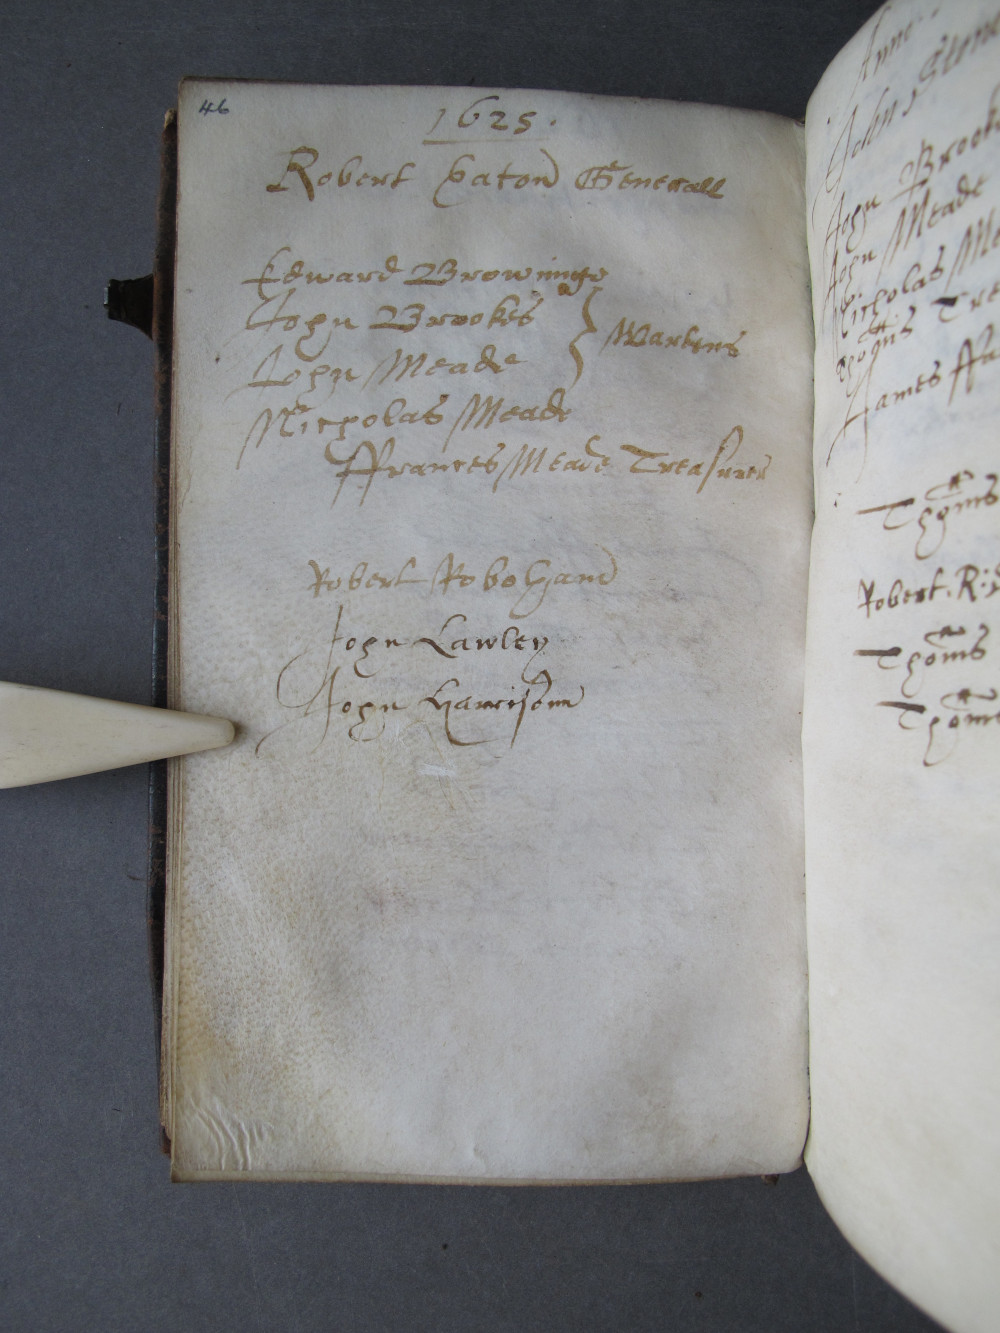 46
1625.
Robert Eaton Generall
Edward Browninge
John Brookes
John Meade
Wardens
Nicholas Meade
ffrances Meade Treasurer
Robert Robohand
John Lawley
John Harrisonn
Anne
John Brook
John Meade
Nicholas Me
Thoms Tre
James ffa
Thoms
Robert. R:
Thoms
Thoms